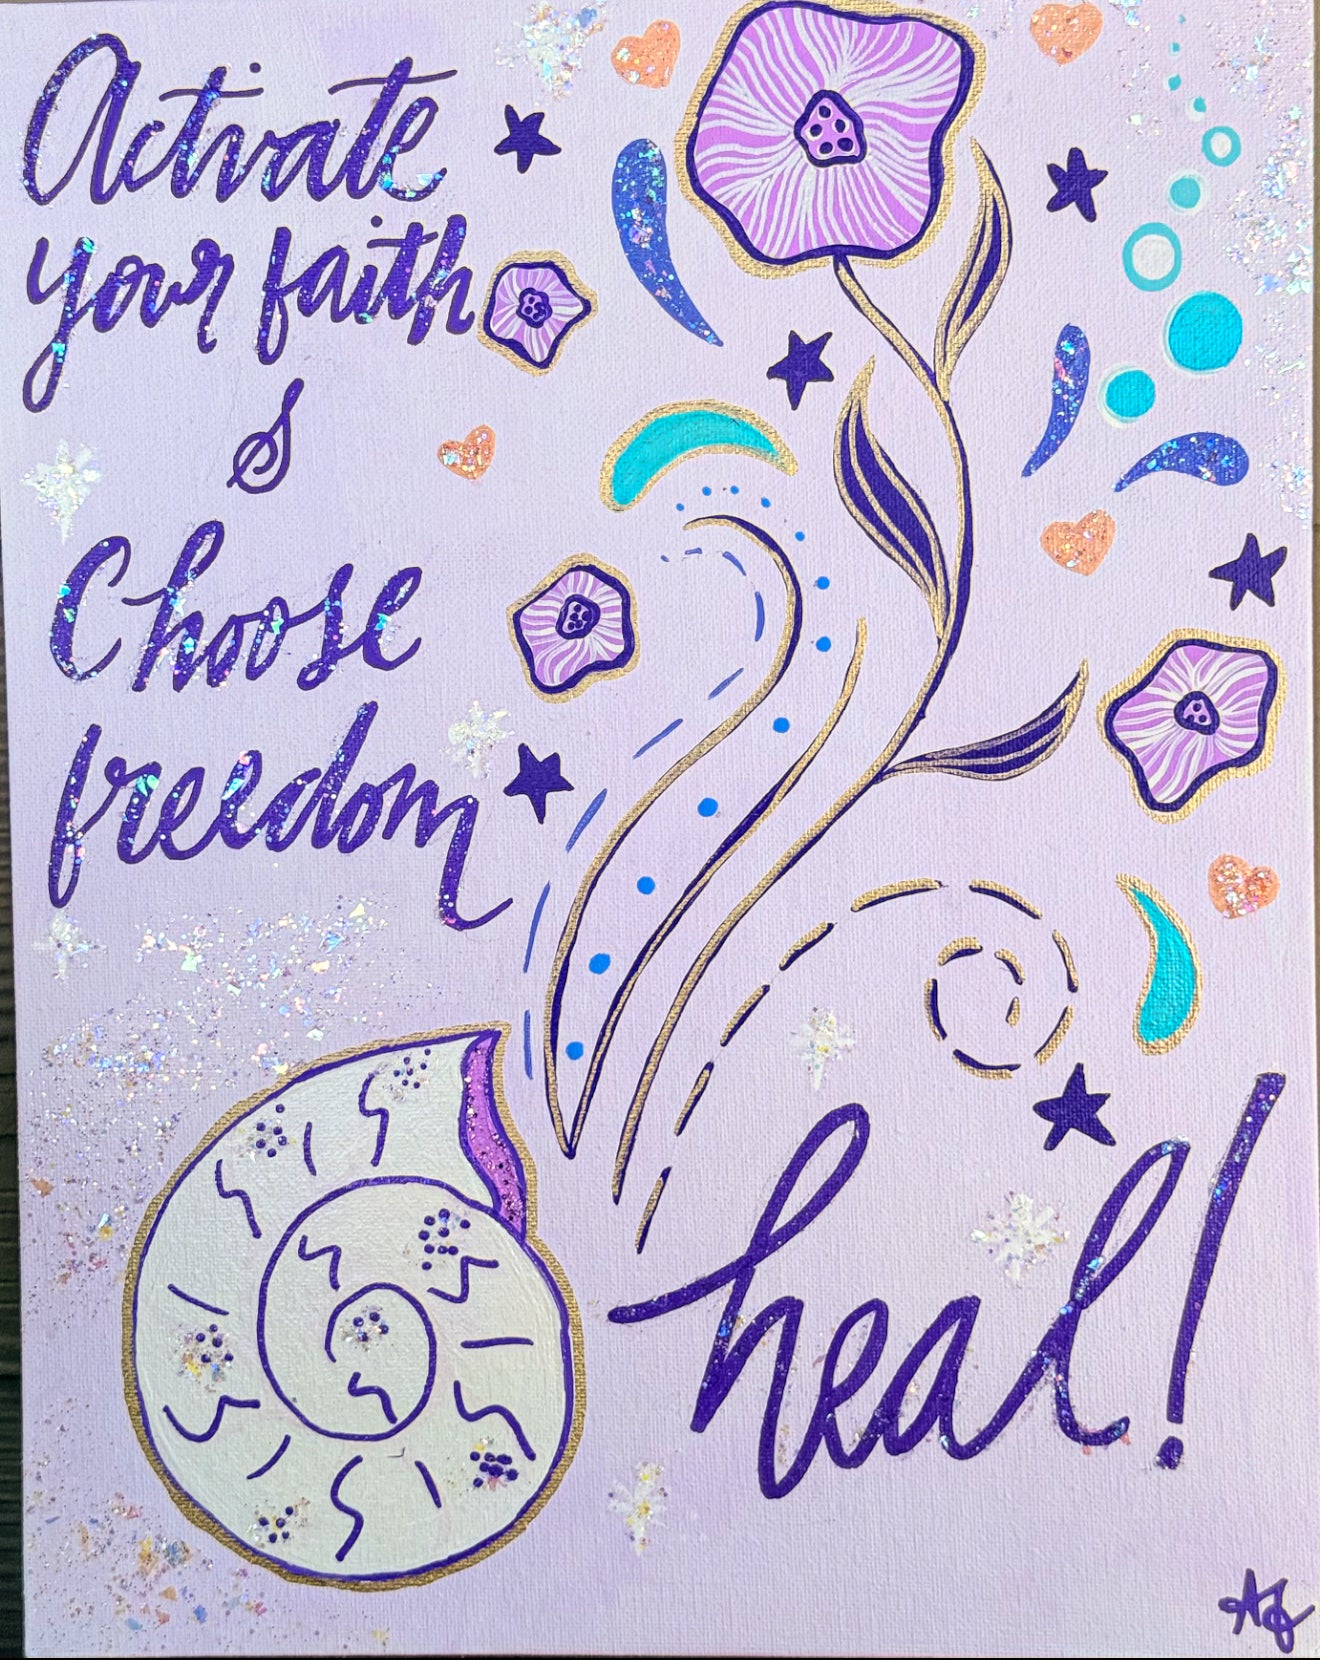 Activate
your faith
&
Choose
freedom
heal!
AJ